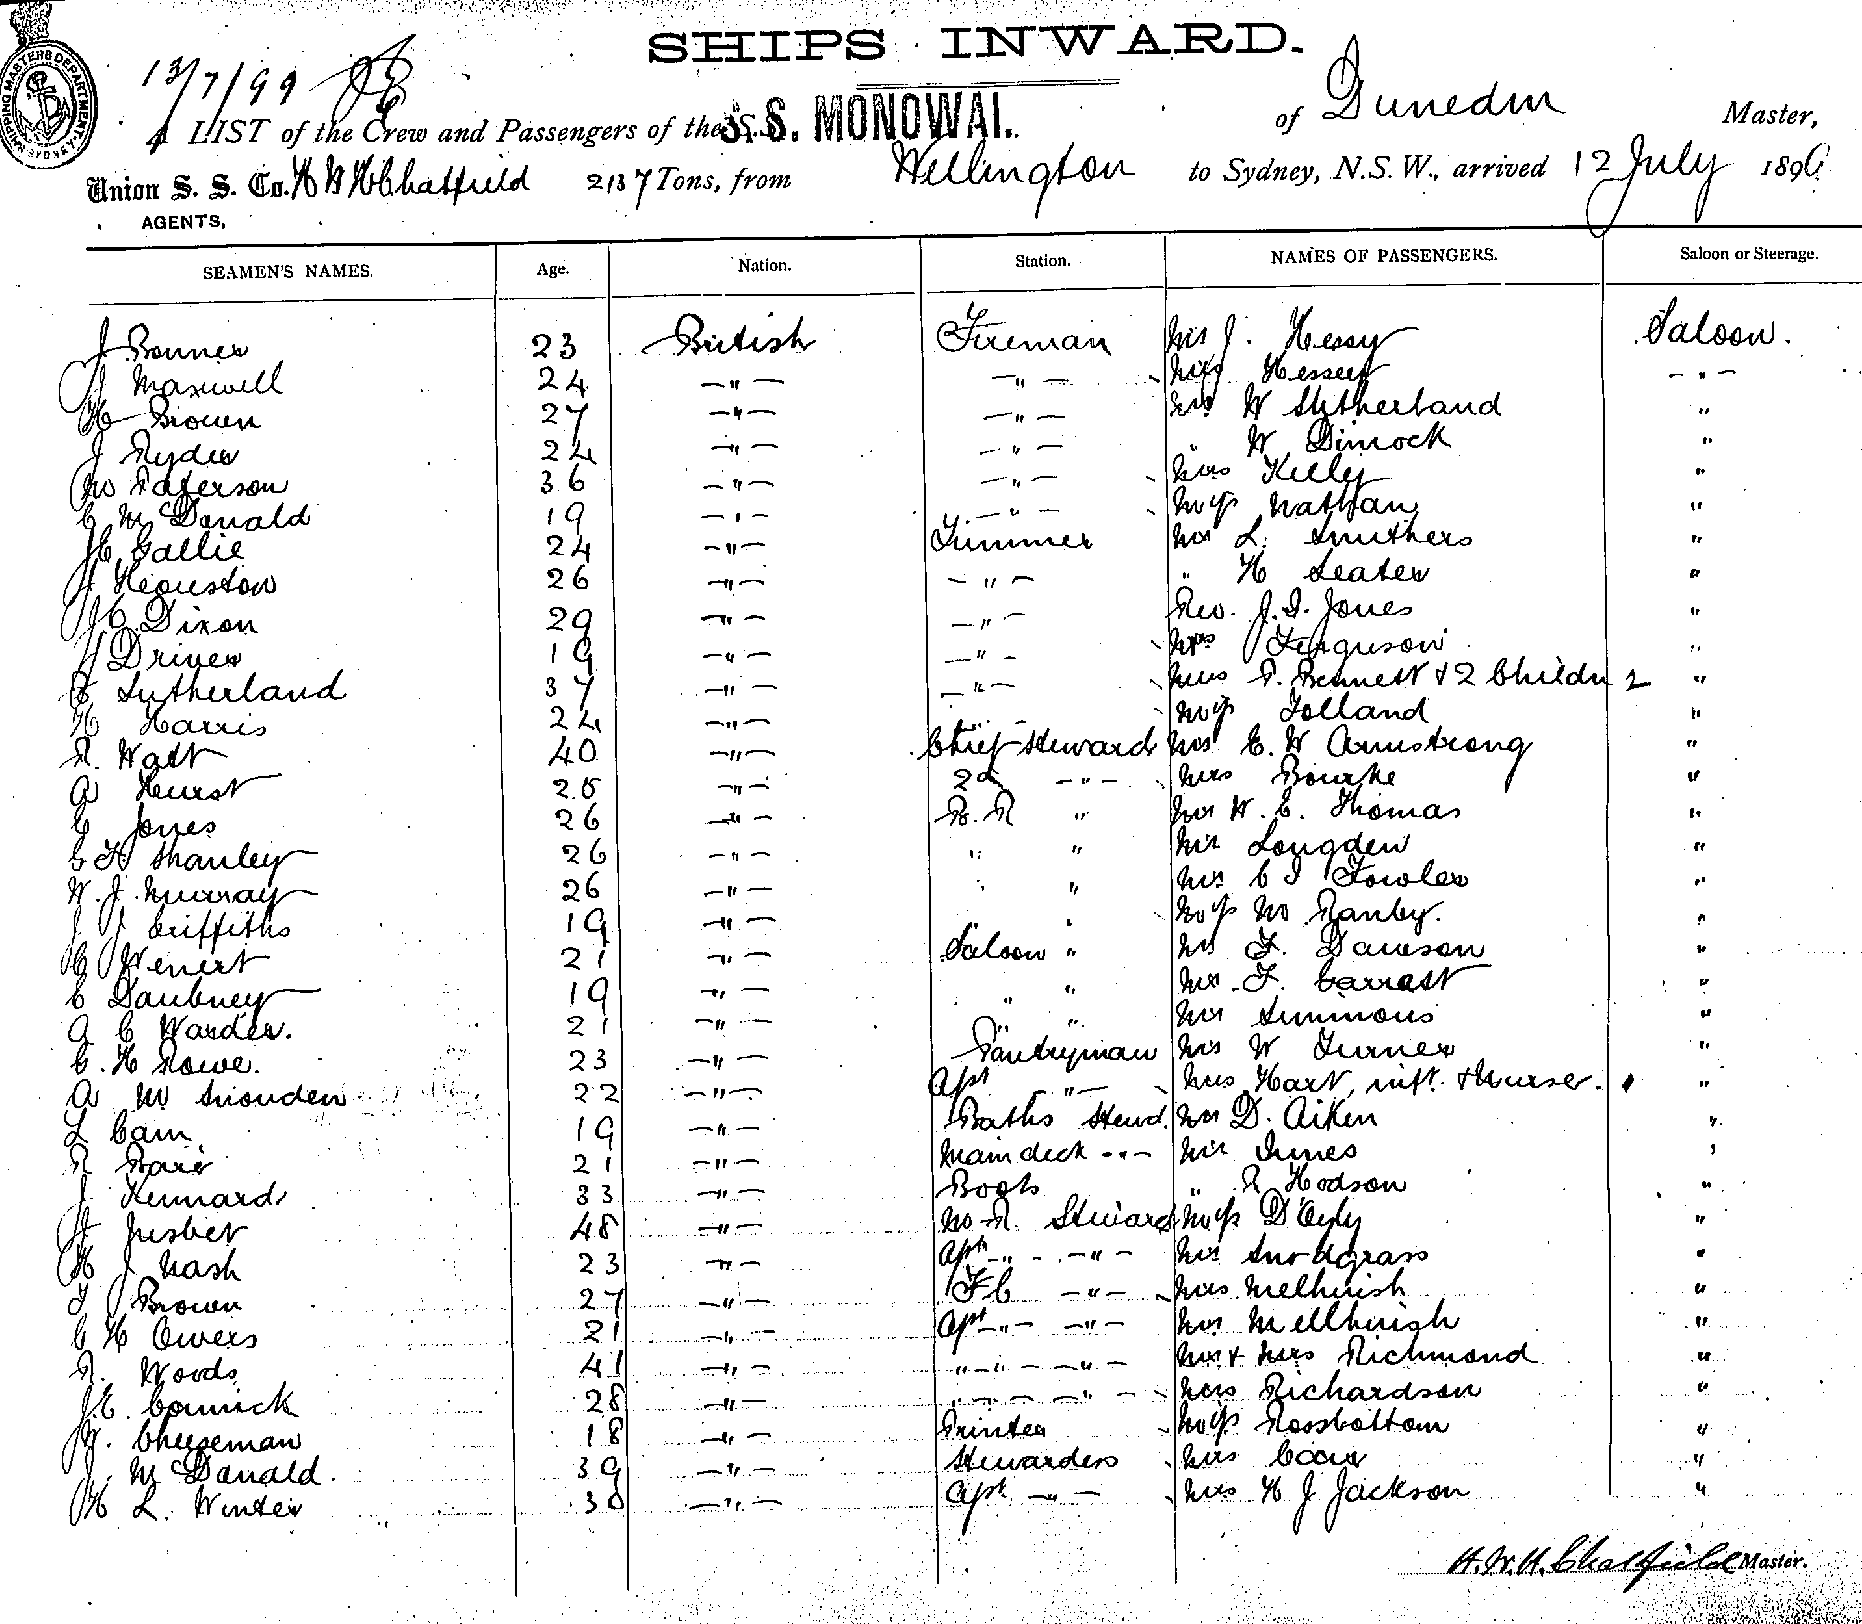 SHIPS INWARD.
13/7/99
A LIST of the Crew and Passengers of the S.S. MONOWAI. of Dunedin Master,
Union S. S. Co. H W H Chatfield 2137 Tons, from Wellington to Sydney, N.S.W., arrived 12 July 189
AGENTS,
SEAMEN'S NAMES. Age. Nation. Station. NAMES OF PASSENGERS. Saloon or Steerage.
J Bonner 23 British Fireman Mr J. Hessy Saloon.
J Maxwell 24 —"— —"— Miss —"—
H Brown 27 —"— —"— Mr W Sutherland "
J Ryder 24 —"— —"— " W Dimock "
W Paterson 36 —"— —"— Mrs Kelly "
C McDonald 19 —"— —"— Miss Nathan "
Gallie 24 —"— Trimmer Mr L. Smithers "
J Heouston 26 —"— —"— " H Seater "
Dixon 29 —"— —"— Rev. J. I. Jones "
J Driver 19 —"— —"— Mrs Ferguson "
R Sutherland 37 —"— —"— Mrs P. Bennett & 2 Childn 2 "
H Harris 24 —"— —"— Miss Tolland "
R. Watt 40 —"— Chief Steward Mr E. W Armstrong "
A Hurst 25 —"— 2d —"— Mrs Bourke "
C Jones 26 —"— B. R " Mr W. E. Thomas "
C H Stanley 26 —"— " " Mr Longden "
W. J. Murray 26 —"— " " Mr C I Fowler "
J J Griffiths 19 —"— " Miss M Ranby. "
C Wenert 21 —"— Saloon " Mr F. Dawson "
C Daubney 19 —"— " " Mr F. Garratt "
A C Warder. 21 —"— " " Mr Simmons "
C. H Rowe. 23 —"— Pantryman Mr W Turner "
A M Snowden 22 —"— Apt —"— Mrs Hart, inft. & Nurse. "
L Cam 19 —"— Baths Stewd. Mr D. Aiken "
R Barr 21 —"— Main deck —"— Mr Innes "
J Kennard 33 —"— Boots " R Hodson "
J Nisbet 48 —"— M. R. Steward Miss D'Oyly "
H J Nash 23 —"— Apt —"— —"— Mr Snodgrass "
T Brown 27 —"— F C —"— Mrs Melhuish "
C H Owers 21 —"— Apt —"— —"— Mr Mellhuish "
R. Woods 41 —"— "—"— —"— Mr & Mrs Richmond "
J. C. Cornick 28 —"— "—"— —"— Mrs Richardson "
W. Cheeseman 18 —"— Printer Miss Rossbottom "
J. McDonald. 39 —"— Stewardess Mrs "
H L. Winter 30 —"— Apt —"— Mrs H J Jackson "
H. W. H. Chatfield Master.